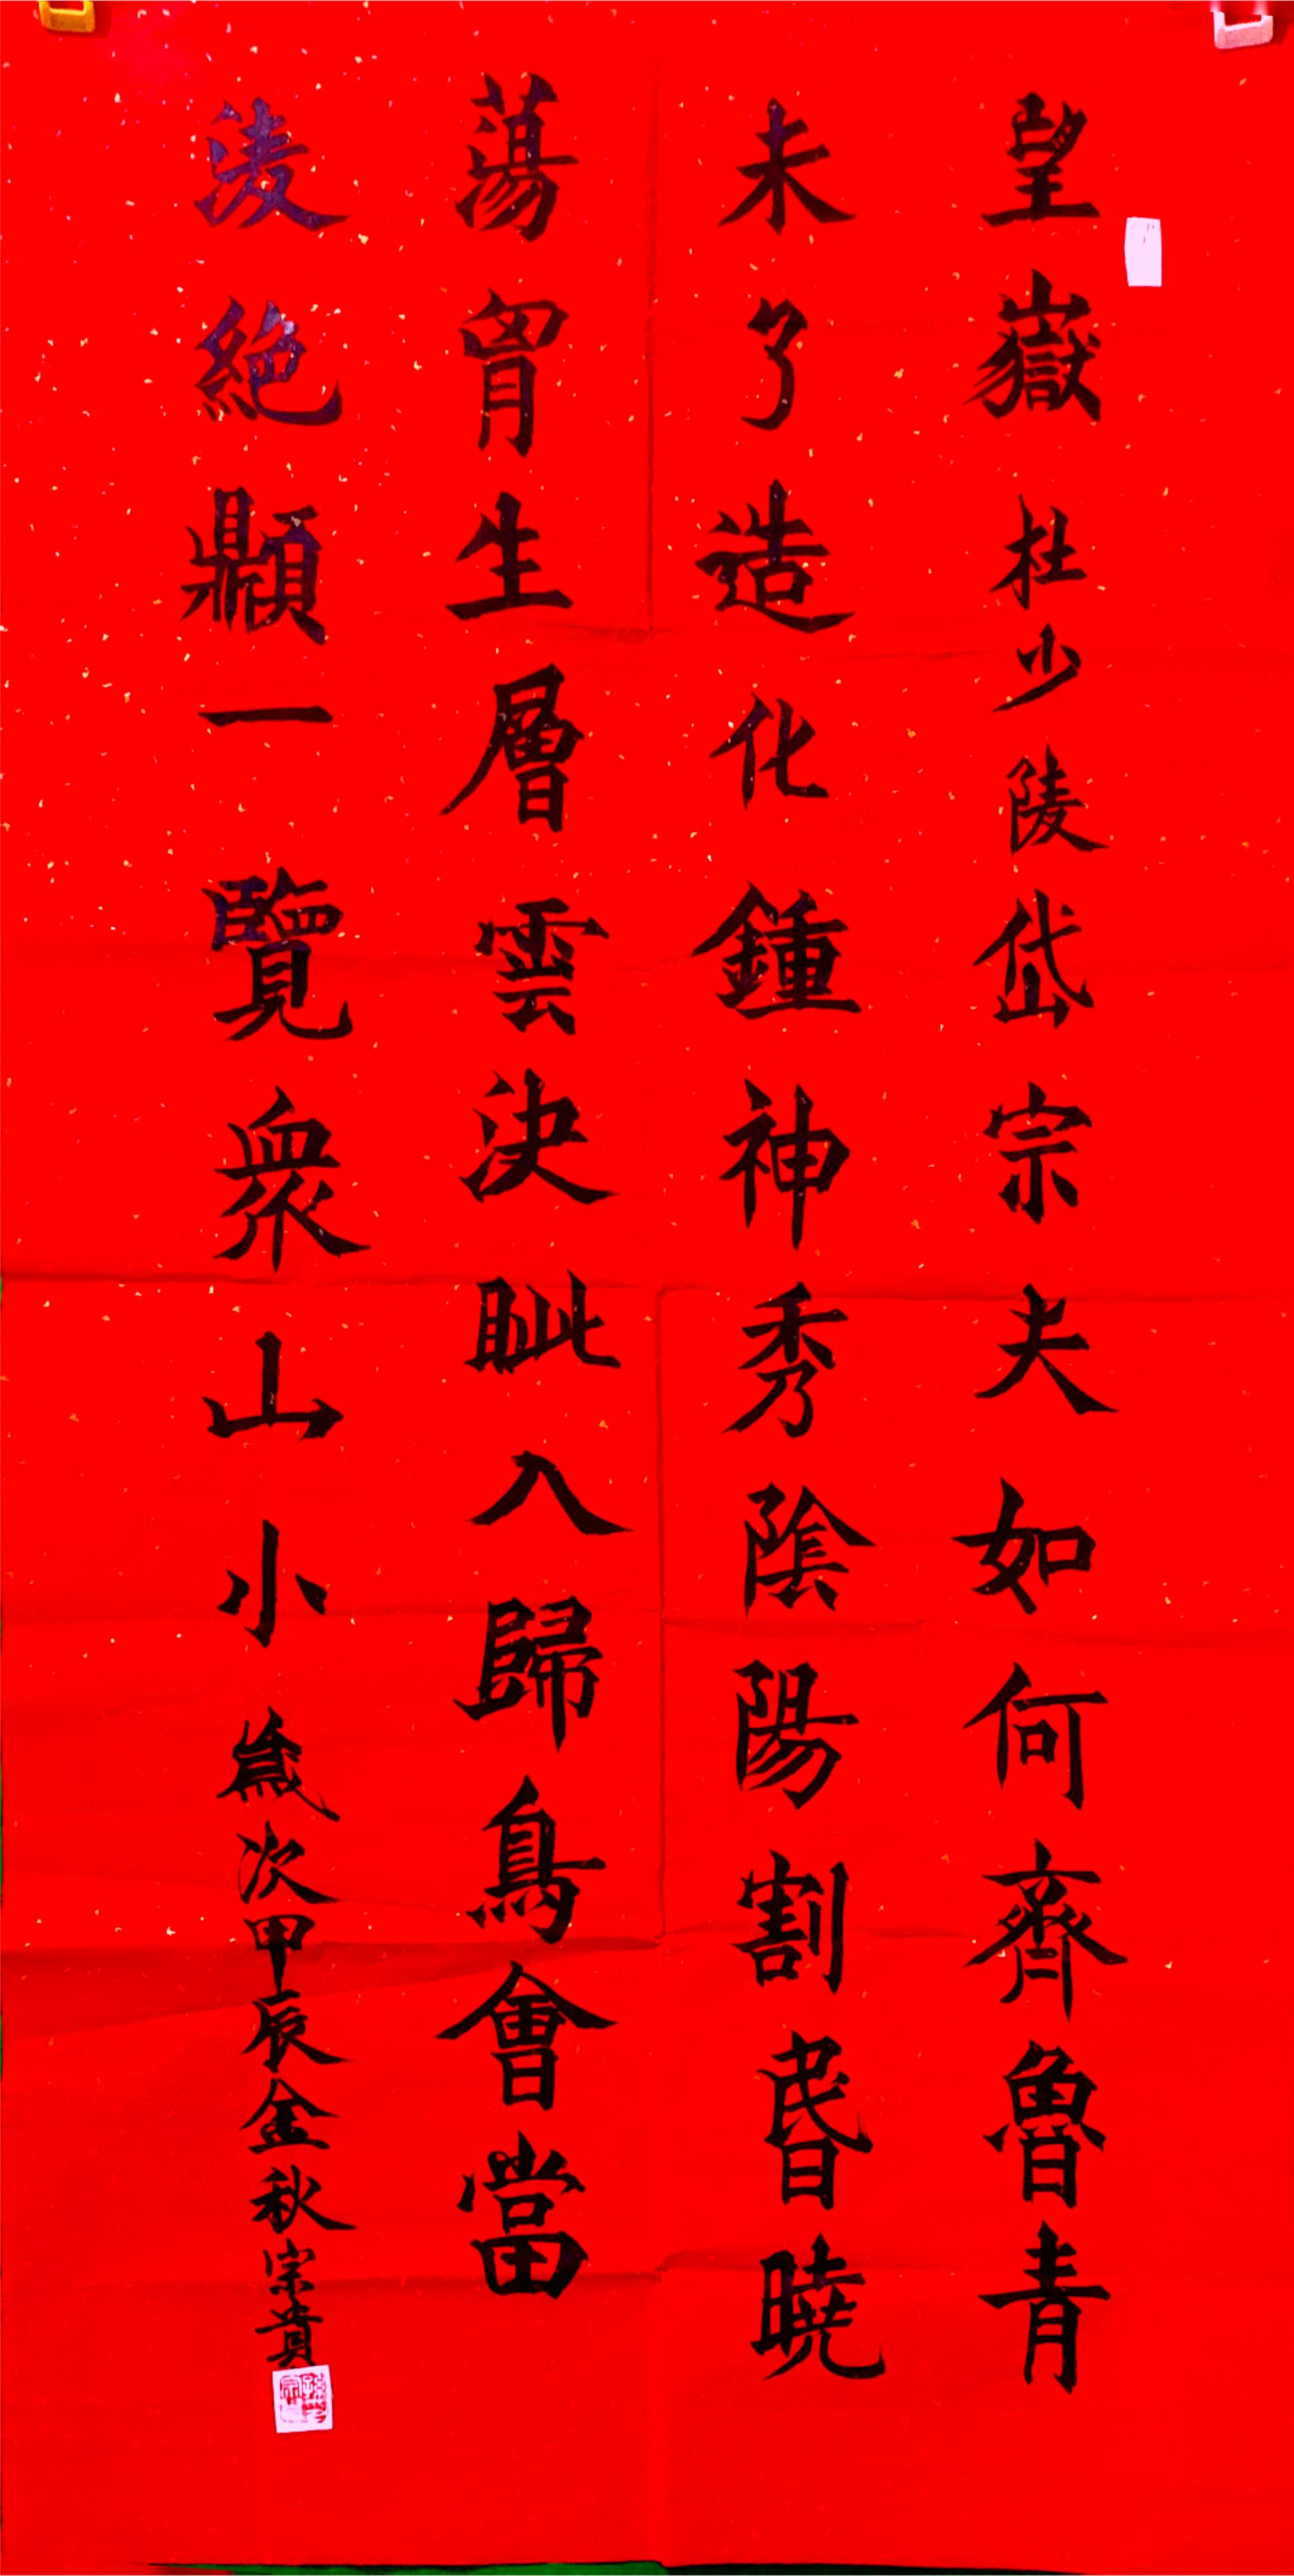 望嶽杜少陵岱宗夫如何齊魯青
未了造化鍾神秀陰陽割昬曉
蕩胷生層雲決眦入歸鳥會當
淩絕顚一覽衆山小歲次甲辰金秋宗貴